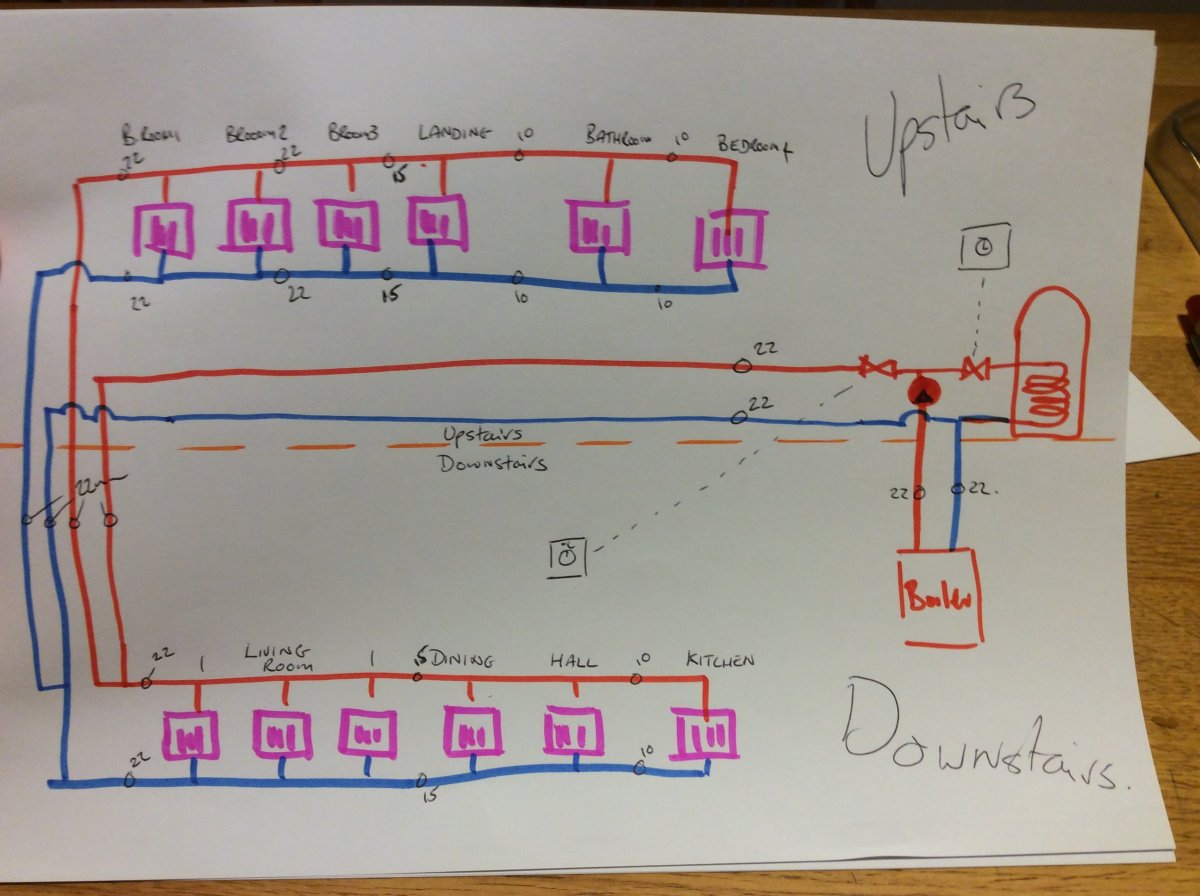 Upstairs
B.Room1 BRoom2 BRoom3 LANDING 10 BATHROOM 10 BEDROOM4
22 22 15
22 22 15 10 10
22
22
Upstairs
Downstairs
22
22 22.
Boiler
22 1 LIVING ROOM 1 15 DINING HALL 10 KITCHEN
22 15 10
Downstairs.